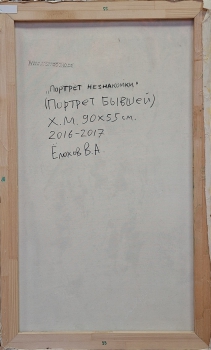 „Портрет незнакомки"
(Портрет Бывшей)
Х.М. 90х55см.
2016-2017
Елохов В.А